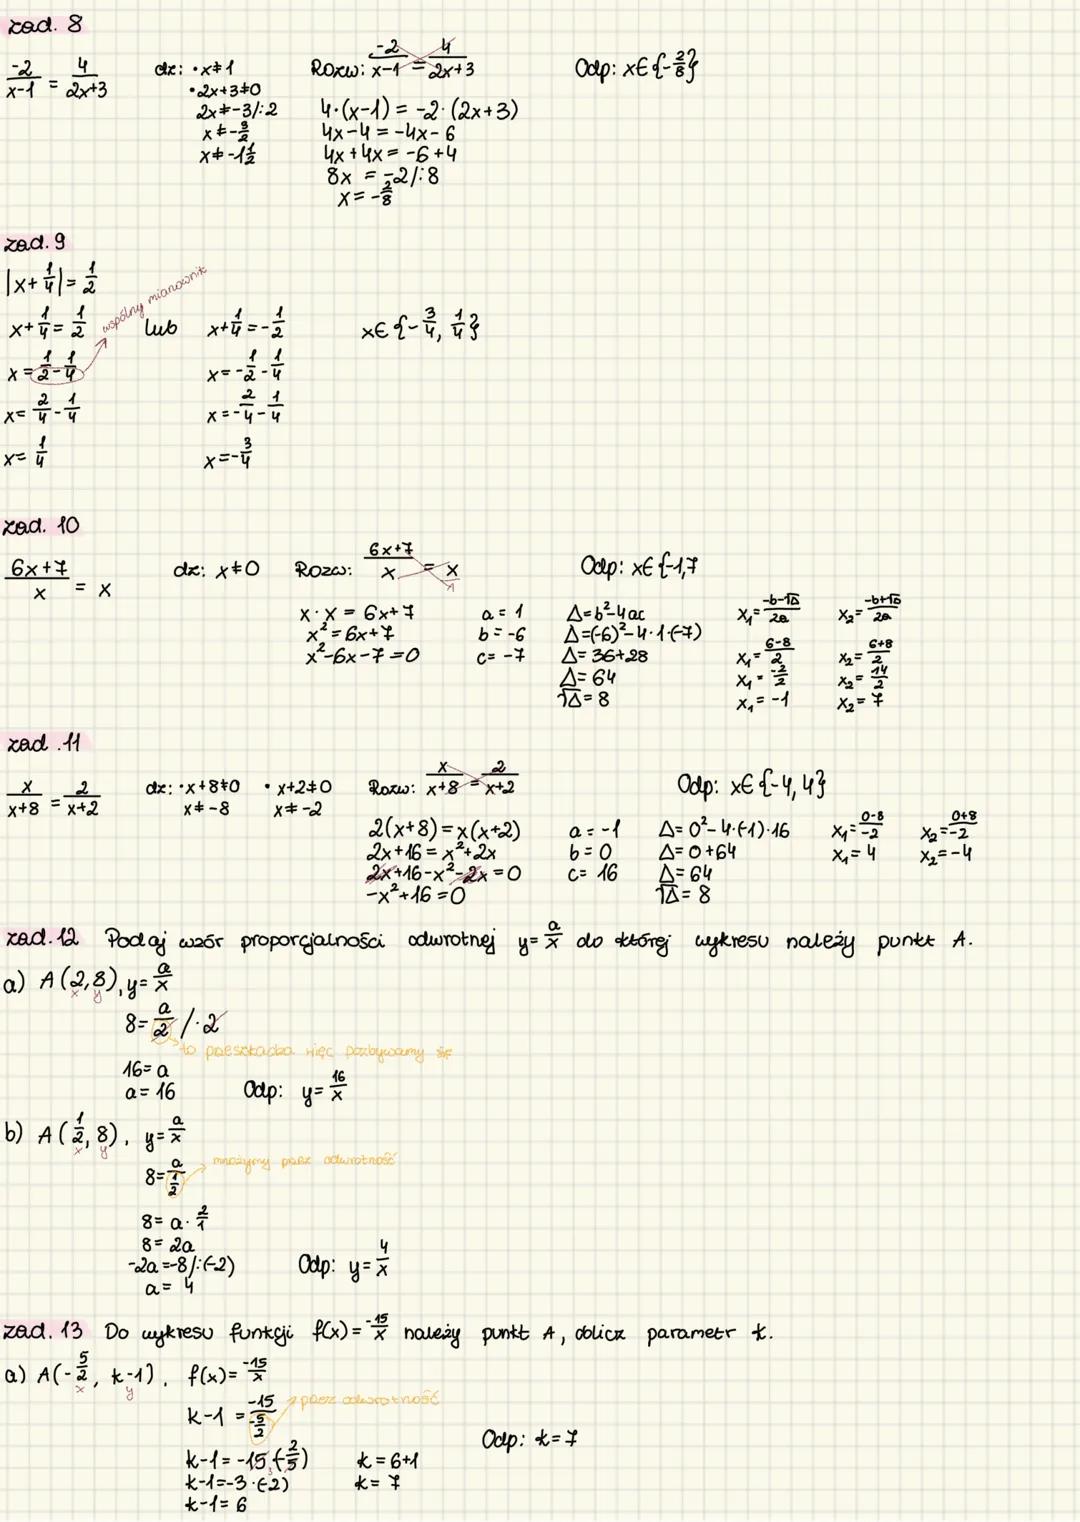 zad. 8
-2/x-1 = 4/2x+3
dz: • x≠1
• 2x+3≠0
2x≠-3/:2
x≠-3/2
x≠-1 1/2
Rozw: -2/x-1 = 4/2x+3
4·(x-1) = -2·(2x+3)
4x-4 = -4x-6
4x+4x = -6+4
8x = -2/:8
x = -2/8
Odp: x∈{-2/8}
zad. 9
|x+1/4| = 1/2
x+1/4 = 1/2 lub x+1/4 = -1/2
wspólny mianownik
x∈{-3/4, 1/4}
x = 1/2-1/4
x = 2/4-1/4
x = 1/4
x = -1/2-1/4
x = -2/4-1/4
x = -3/4
zad. 10
6x+7/x = x
dz: x≠0
Rozw: 6x+7/x = x/1
x·x = 6x+7
x²=6x+7
x²-6x-7=0
a = 1
b = -6
c = -7
Odp: x∈{-1,7
Δ=b²-4ac
Δ=(-6)²-4·1·(-7)
Δ= 36+28
Δ= 64
√Δ= 8
x₁= -b-√Δ/2a
x₁= 6-8/2
x₁= -2/2
x₁= -1
x₂= -b+√Δ/2a
x₂= 6+8/2
x₂= 14/2
x₂= 7
zad. 11
x/x+8 = 2/x+2
dz: • x+8≠0 • x+2≠0
x≠-8 x≠-2
Rozw: x/x+8 = 2/x+2
2(x+8)=x(x+2)
2x+16=x²+2x
2x+16-x²-2x=0
-x²+16=0
a = -1
b = 0
c = 16
Odp: x∈{-4,4}
Δ= 0²-4·(-1)·16
Δ= 0+64
Δ= 64
√Δ= 8
x₁= 0-8/-2
x₁= 4
x₂= 0+8/-2
x₂= -4
zad. 12 Podaj wzór proporcjalności odwrotnej y= a/x do której wykresu należy punkt A.
a) A(2,8), y= a/x
x y
8= a/2 /·2
to przeszkadza więc pozbywamy się
16= a
a= 16
Odp: y= 16/x
b) A(1/2, 8), y= a/x
x y
8= a/1/2
mnożymy przez odwrotność
8= a·2/1
8= 2a
-2a=-8/:(-2)
a= 4
Odp: y= 4/x
zad. 13 Do wykresu funkcji f(x)= -15/x należy punkt A, oblicz parametr k.
a) A(-5/2, k-1), f(x)= -15/x
x y
k-1 = -15/-5/2
przez odwrotność
k-1= -15·(-2/5)
k-1=-3·(-2)
k-1= 6
k = 6+1
k= 7
Odp: k=7